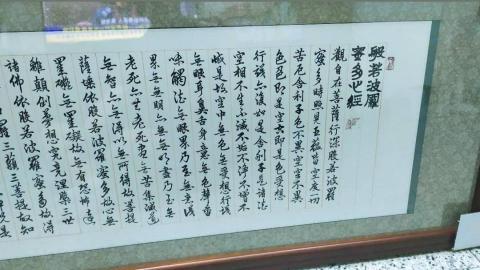 般若波羅
蜜多心經
觀自在菩薩行深般若波羅
蜜多時照見五蘊皆空度一切
苦厄舍利子色不異空空不異
色色即是空空即是色受想
行識亦復如是舍利子是諸法
空相不生不滅不垢不淨不增不
減是故空中無色無受想行識
無眼耳鼻舌身意無色聲香
味觸法無眼界乃至無意識
界無無明亦無無明盡乃至無
老死亦無老死盡無苦集滅道
無智亦無得以無所得故菩提
薩埵依般若波羅蜜多故心無
罣礙無罣礙故無有恐怖遠
離顛倒夢想究竟涅槃三世
諸佛依般若波羅蜜多故得
羅三藐三菩提故知